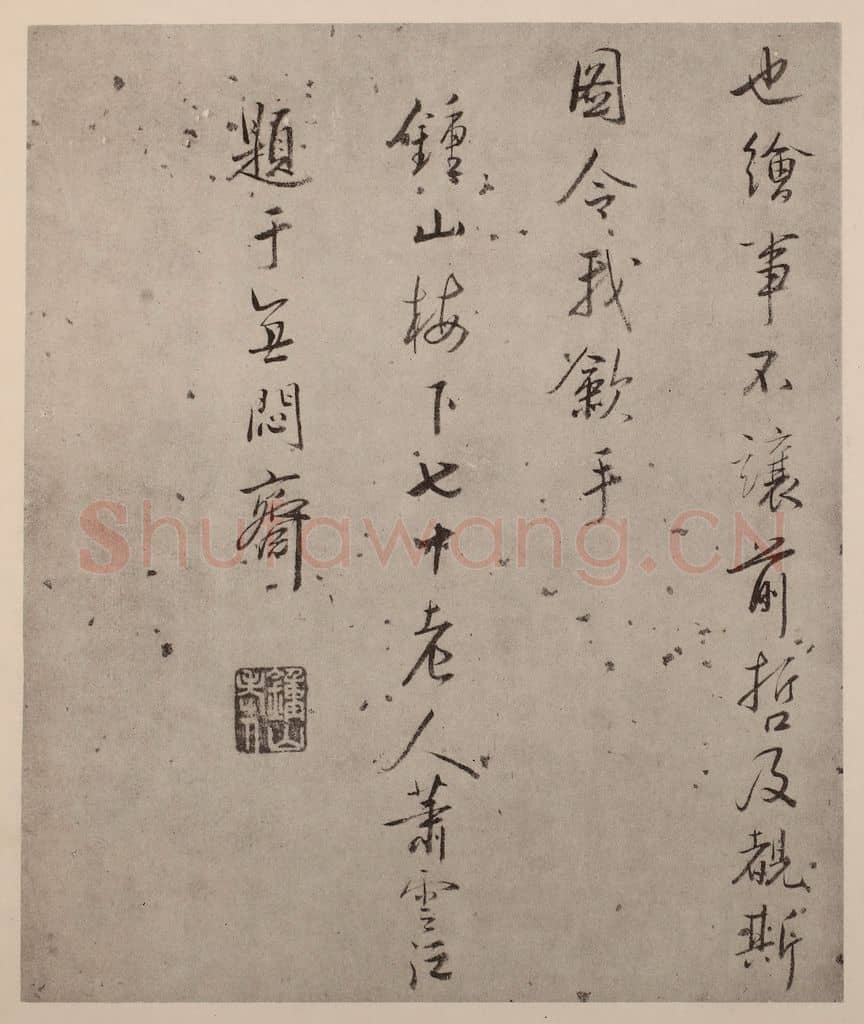 也繪事不讓前哲及覩斯
圖令我歛手
鍾山梅下七十老人蕭雲從
題于無悶齋
鍾山
Shufawang.CN